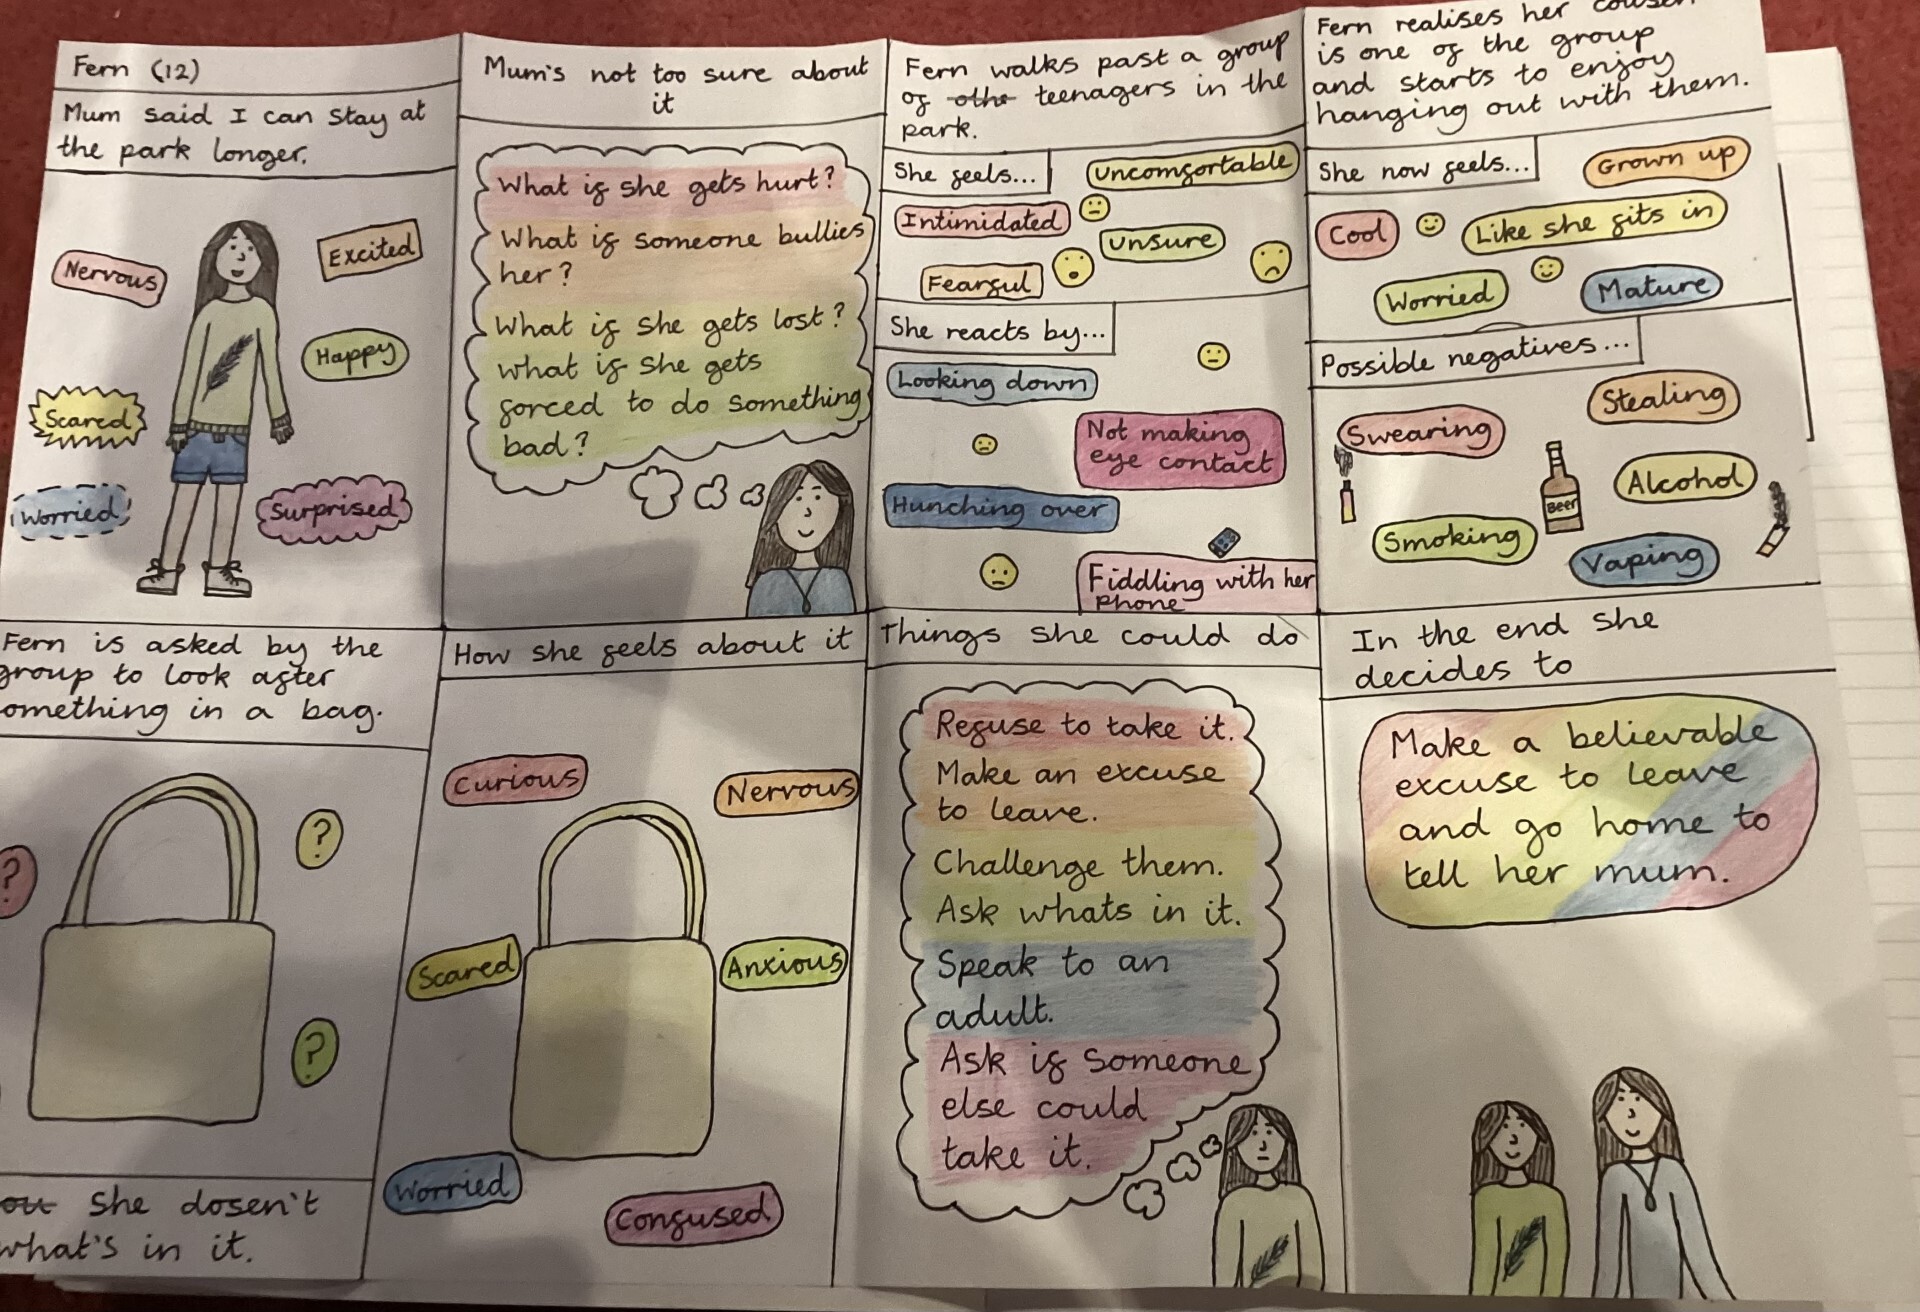 Fern (12)
Mum said I can stay at
the park longer.
Nervous
Excited
Happy
Scared
Worried
Surprised
Mum's not too sure about
it
What if she gets hurt?
What if someone bullies
her?
What if she gets lost?
what if she gets
forced to do something
bad?
Fern walks past a group
of othe teenagers in the
park.
She feels...
Uncomfortable
Intimidated
unsure
Fearful
She reacts by...
Looking down
Not making
eye contact
Hunching over
Fiddling with her
phone
Fern realises her cousen
is one of the group
and starts to enjoy
hanging out with them.
She now feels...
Grown up
Cool
Like she fits in
Worried
Mature
Possible negatives...
Stealing
Swearing
Alcohol
Beer
Smoking
Vaping
Fern is asked by the
group to look after
omething in a bag.
?
?
?
She dosen't
what's in it.
How she feels about it
Curious
Nervous
Scared
Anxious
Worried
Confused
Things she could do
Refuse to take it.
Make an excuse
to leave.
Challenge them.
Ask whats in it.
Speak to an
adult.
Ask if someone
else could
take it.
In the end she
decides to
Make a believable
excuse to leave
and go home to
tell her mum.